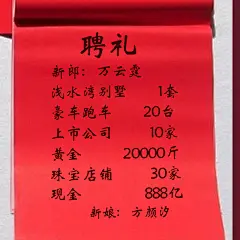 聘礼
新郎：万云霆
浅水湾别墅 1套
豪车跑车 20台
上市公司 10家
黄金 20000斤
珠宝店铺 30家
现金 888亿
新娘：方颜汐